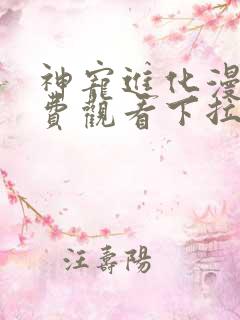 神寵進化漫
費觀看下拉
汪壽陽